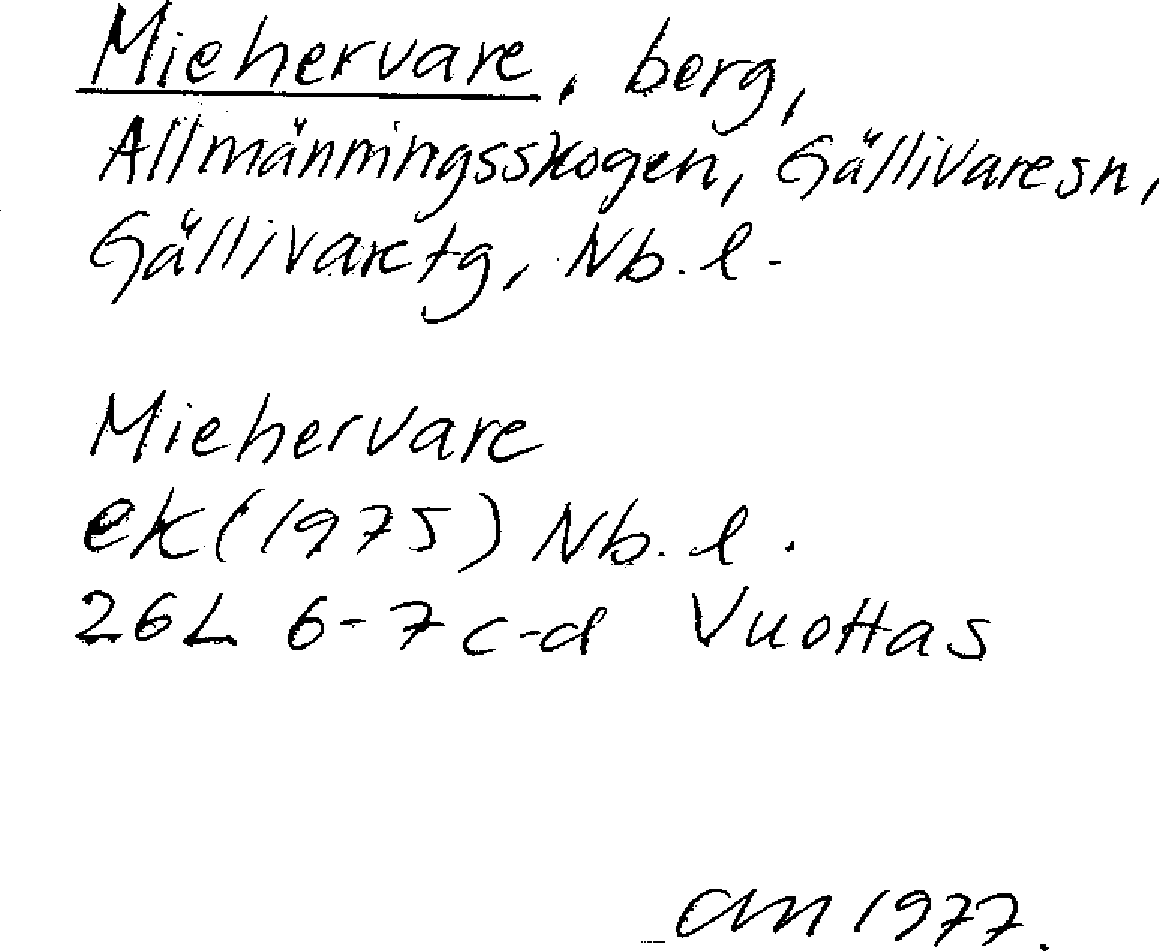 Miehervare, berg,
Allmänningsskogen, Gällivare sn,
Gällivare tg, Nb. l.
Miehervare
ek (1975) Nb. l.
26L 6-7 c-d Vuottas
am 1977.